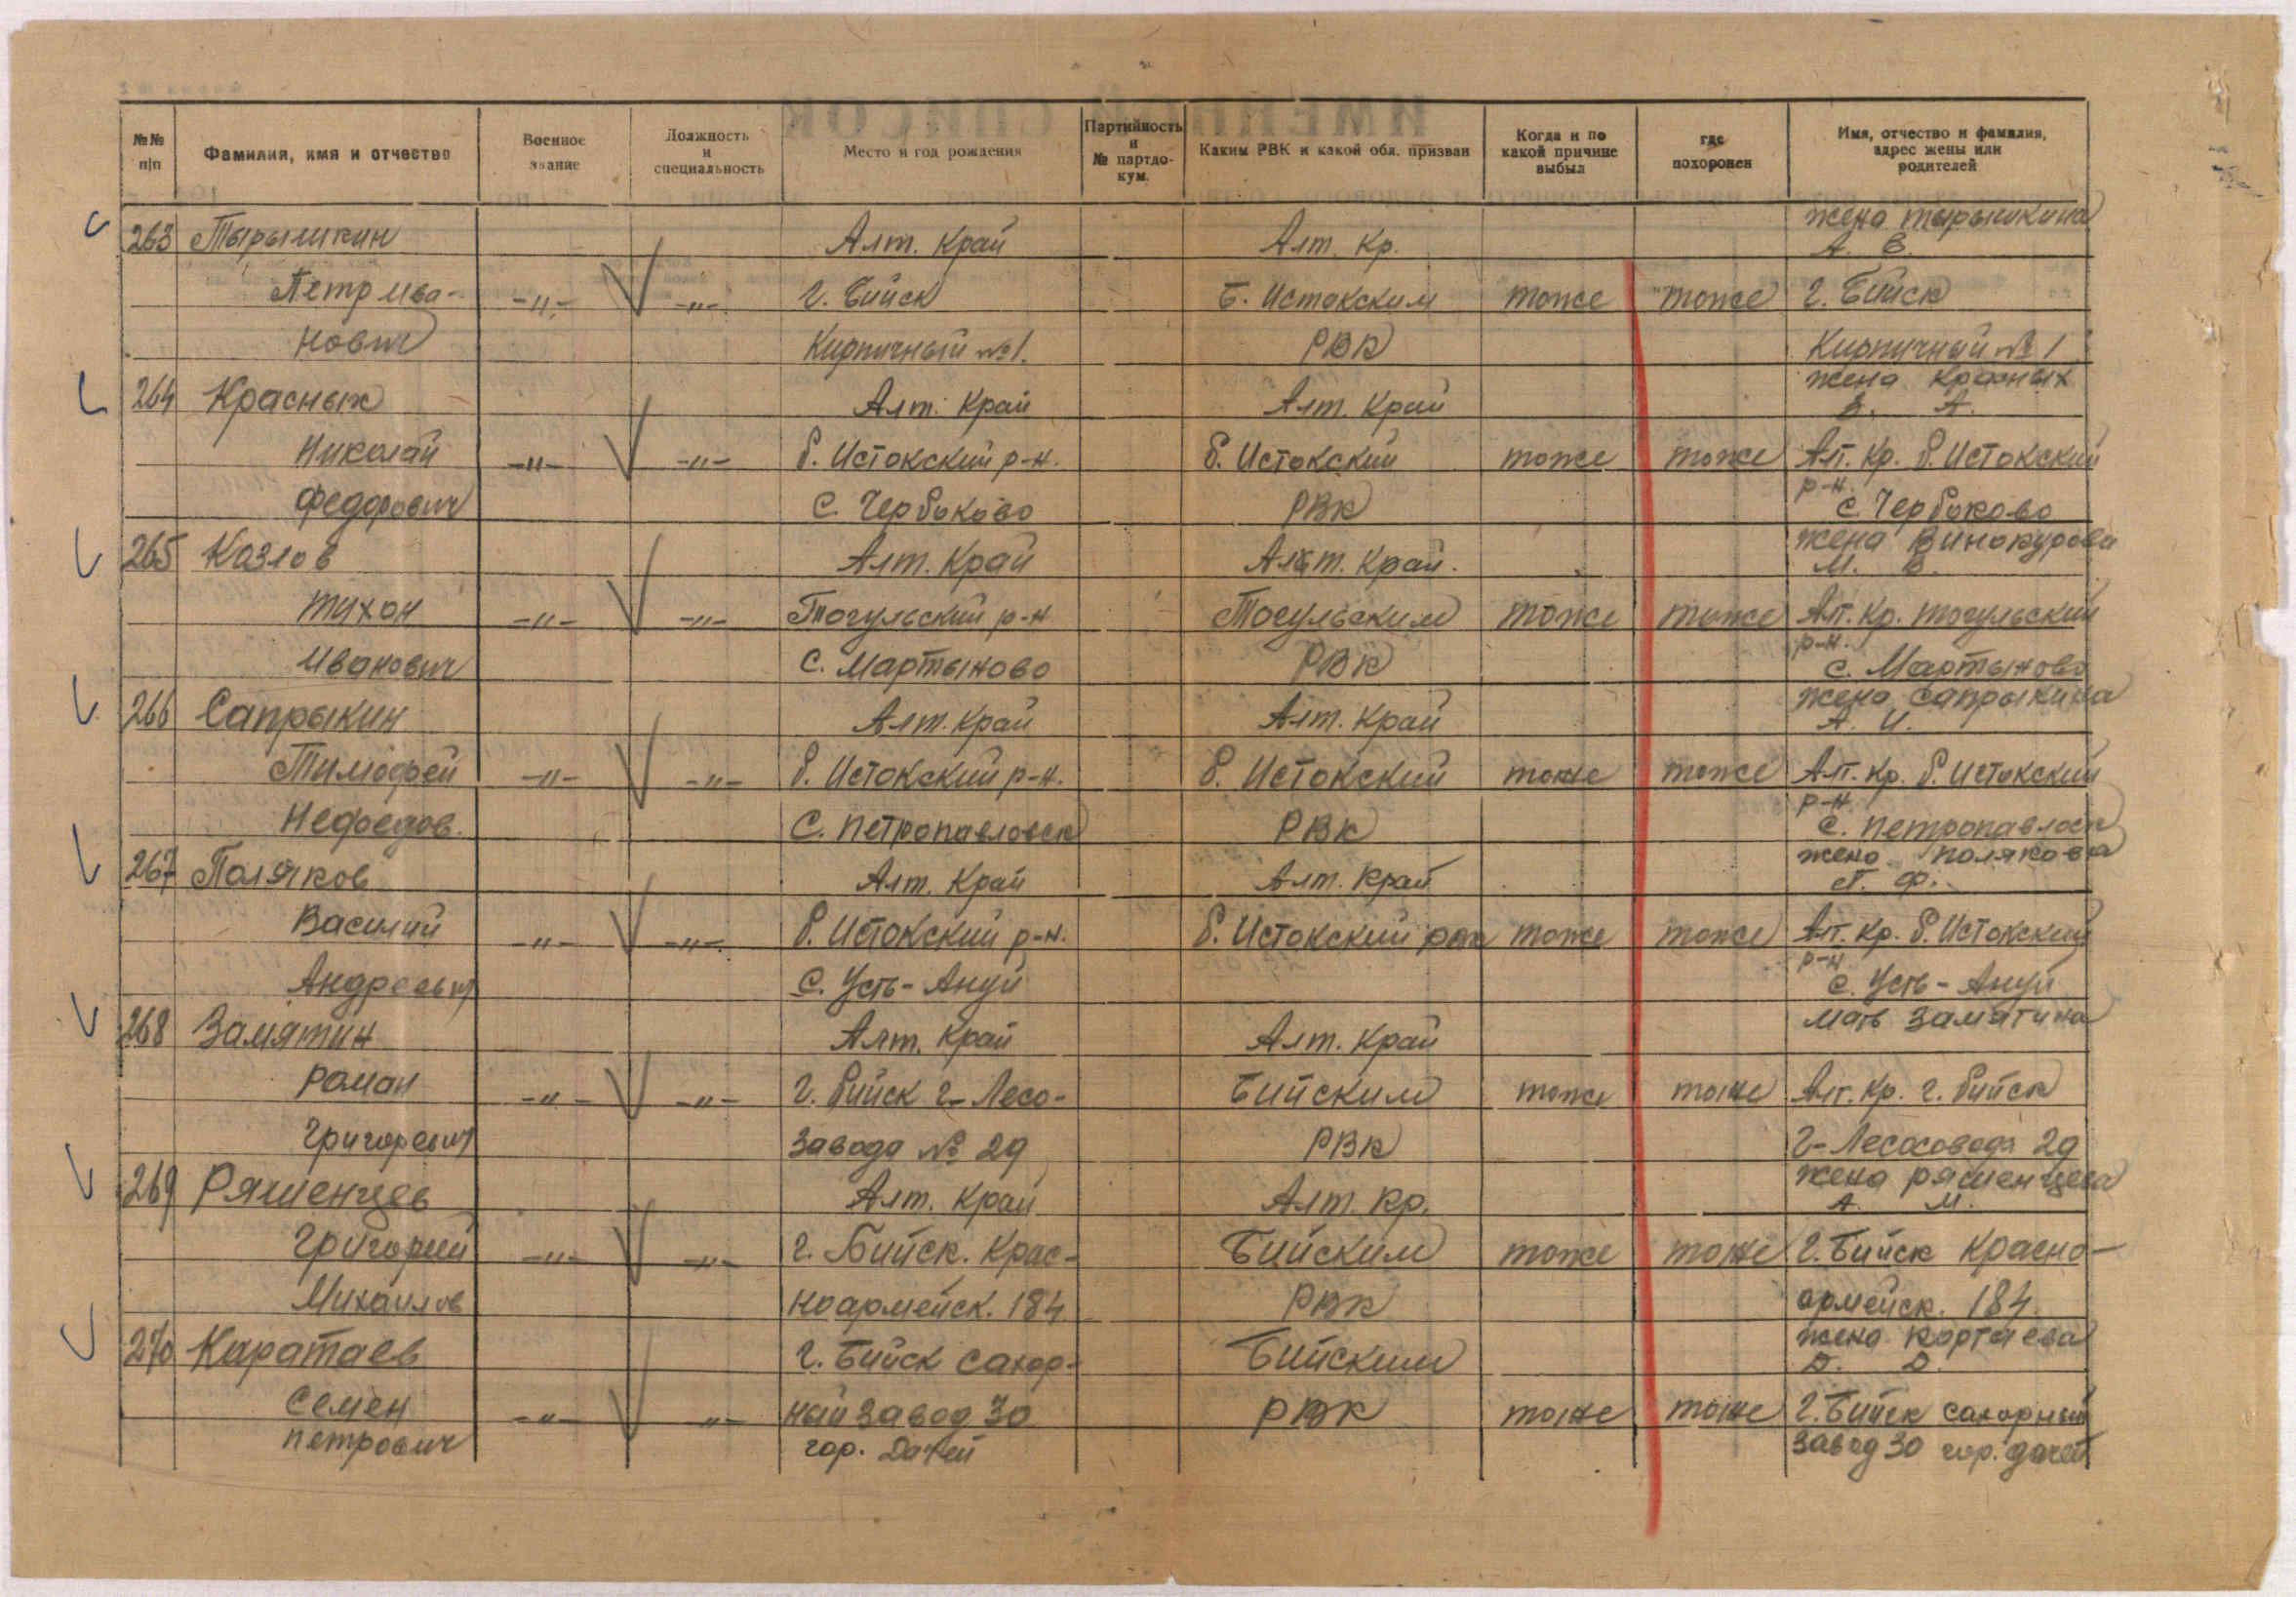 №№ п/п Фамилия, имя и отчество Военное звание Должность и специальность Место и год рождения Партийность и № партдокум. Каким РВК и какой обл. призван Когда и по какой причине выбыл где похоронен Имя, отчество и фамилия, адрес жены или родителей
жена Тырышкина
263 Тырышкин Алт. Край Алт. Кр. А. Е.
Петр Ива- -"- -"- г. Бийск Б. Истокским тоже тоже г. Бийск
нович Кирпичный №1. РВК Кирпичный №1
жена Красных
264 Красных Алт. Край Алт. Край А.
Николай -"- -"- б. Истокский р-н. б. Истокский тоже тоже Алт. Кр. б. Истокский
р-н.
Федорович С. Чербоково РВК с. Чербоково
жена Винокурова
265 Козлов Алт. Край Алт. Край. М.
Тихон -"- -"- Тогульский р-н Тогульским тоже тоже Алт. Кр. Тогульский
р-н.
Иванович С. Мартыново РВК с. Мартыново
жена Сапрыкина
266 Сапрыкин Алт. Край Алт. Край А. И.
Тимофей -"- -"- б. Истокский р-н. б. Истокский тоже тоже Алт. Кр. б. Истокский
р-н
Нефоедов. С. Петропавловск РВК с. Петропавловск
жена Полякова
267 Поляков Алт. Край Алт. Край Ф.
Василий -"- -"- б. Истокский р-н. б. Истокский рвк тоже тоже Алт. Кр. б. Истокский
р-н
Андреевич С. Усть-Ануй с. Усть-Ануй
мать Заматина
268 Замятин Алт. Край Алт. Край
Роман -"- -"- г. Бийск 2-Лесо- Бийским тоже тоже Алт. Кр. г. Бийск
Григоревич завода № 29 РВК 2-Лесозавода 29
жена Ряшенцева
269 Ряшенцев Алт. Край Алт. Кр. А. М.
Григорий -"- -"- г. Бийск. Крас- Бийским тоже тоже г. Бийск Красно-
Михайлов ноармейск. 184 РВК армейск. 184.
жена Картаева
270 Каратаев г. Бийск сахор- Бийским Д. Д.
Семен -"- -"- ный завод 30 РВК тоже тоже г. Бийск сахорный
Петрович гор. Дачей завод 30 гор. дачей